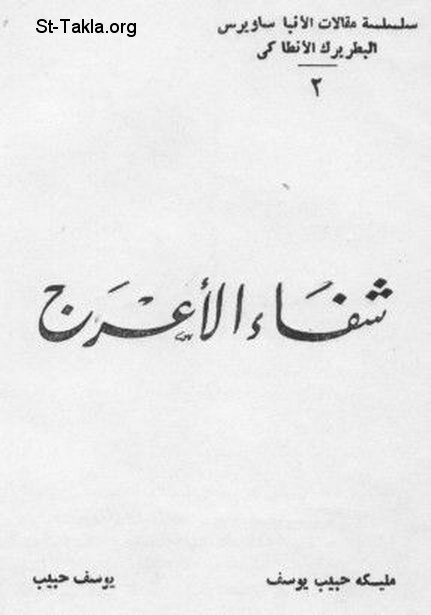 St-Takla.org
سلسلة مقالات الأنبا ساويرس
البطريرك الأنطاكى
٢
شفَاء الأعْرَج
مليكه حبيب يوسف
يوسف حبيب